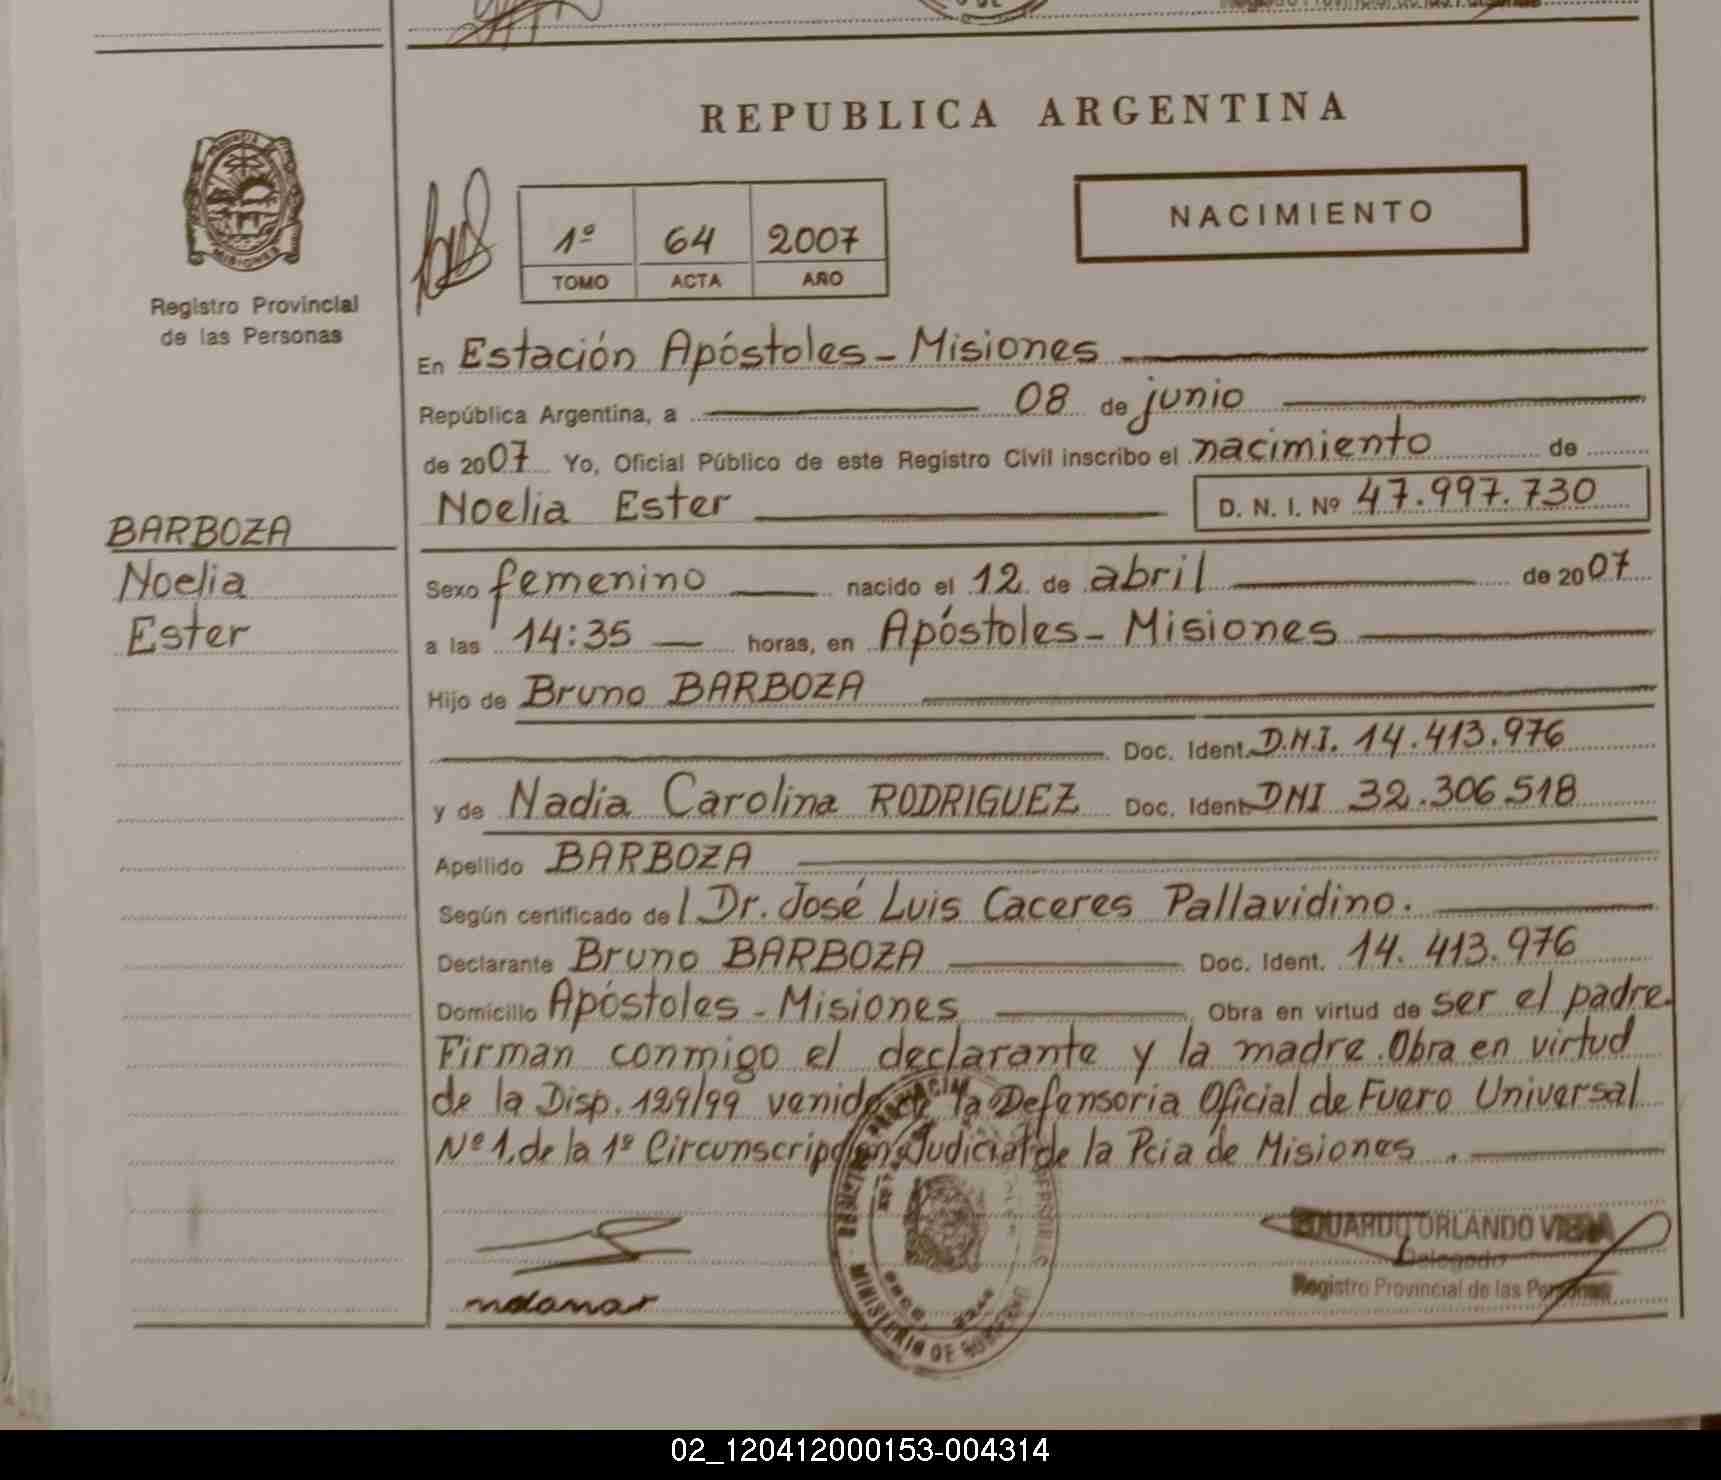 REPUBLICA ARGENTINA
PROVINCIA DE
MISIONES
Registro Provincial
de las Personas
1º 64 2007
TOMO ACTA AÑO
NACIMIENTO
En Estación Apóstoles - Misiones
República Argentina, a 08 de junio
de 2007 Yo, Oficial Público de este Registro Civil inscribo el nacimiento de
Noelia Ester D. N. I. Nº 47.997.730
BARBOZA
Noelia
Ester
Sexo femenino nacido el 12 de abril de 2007
a las 14:35 horas, en Apóstoles - Misiones
Hijo de Bruno BARBOZA
Doc. Ident. D.N.I. 14.413.976
y de Nadia Carolina RODRIGUEZ Doc. Ident. DNI 32.306.518
Apellido BARBOZA
Según certificado del Dr. José Luis Caceres Pallavidino.
Declarante Bruno BARBOZA Doc. Ident. 14.413.976
Domicilio Apóstoles - Misiones Obra en virtud de ser el padre.
Firman conmigo el declarante y la madre. Obra en virtud
de la Disp. 129/99 venida de la Defensoria Oficial de Fuero Universal
Nº 1. de la 1º Circunscripción Judicial de la Pcia de Misiones.
EDUARDO ORLANDO VIERA
Delegado
Registro Provincial de las Personas
MINISTERIO DE GOBIERNO
02_120412000153-004314